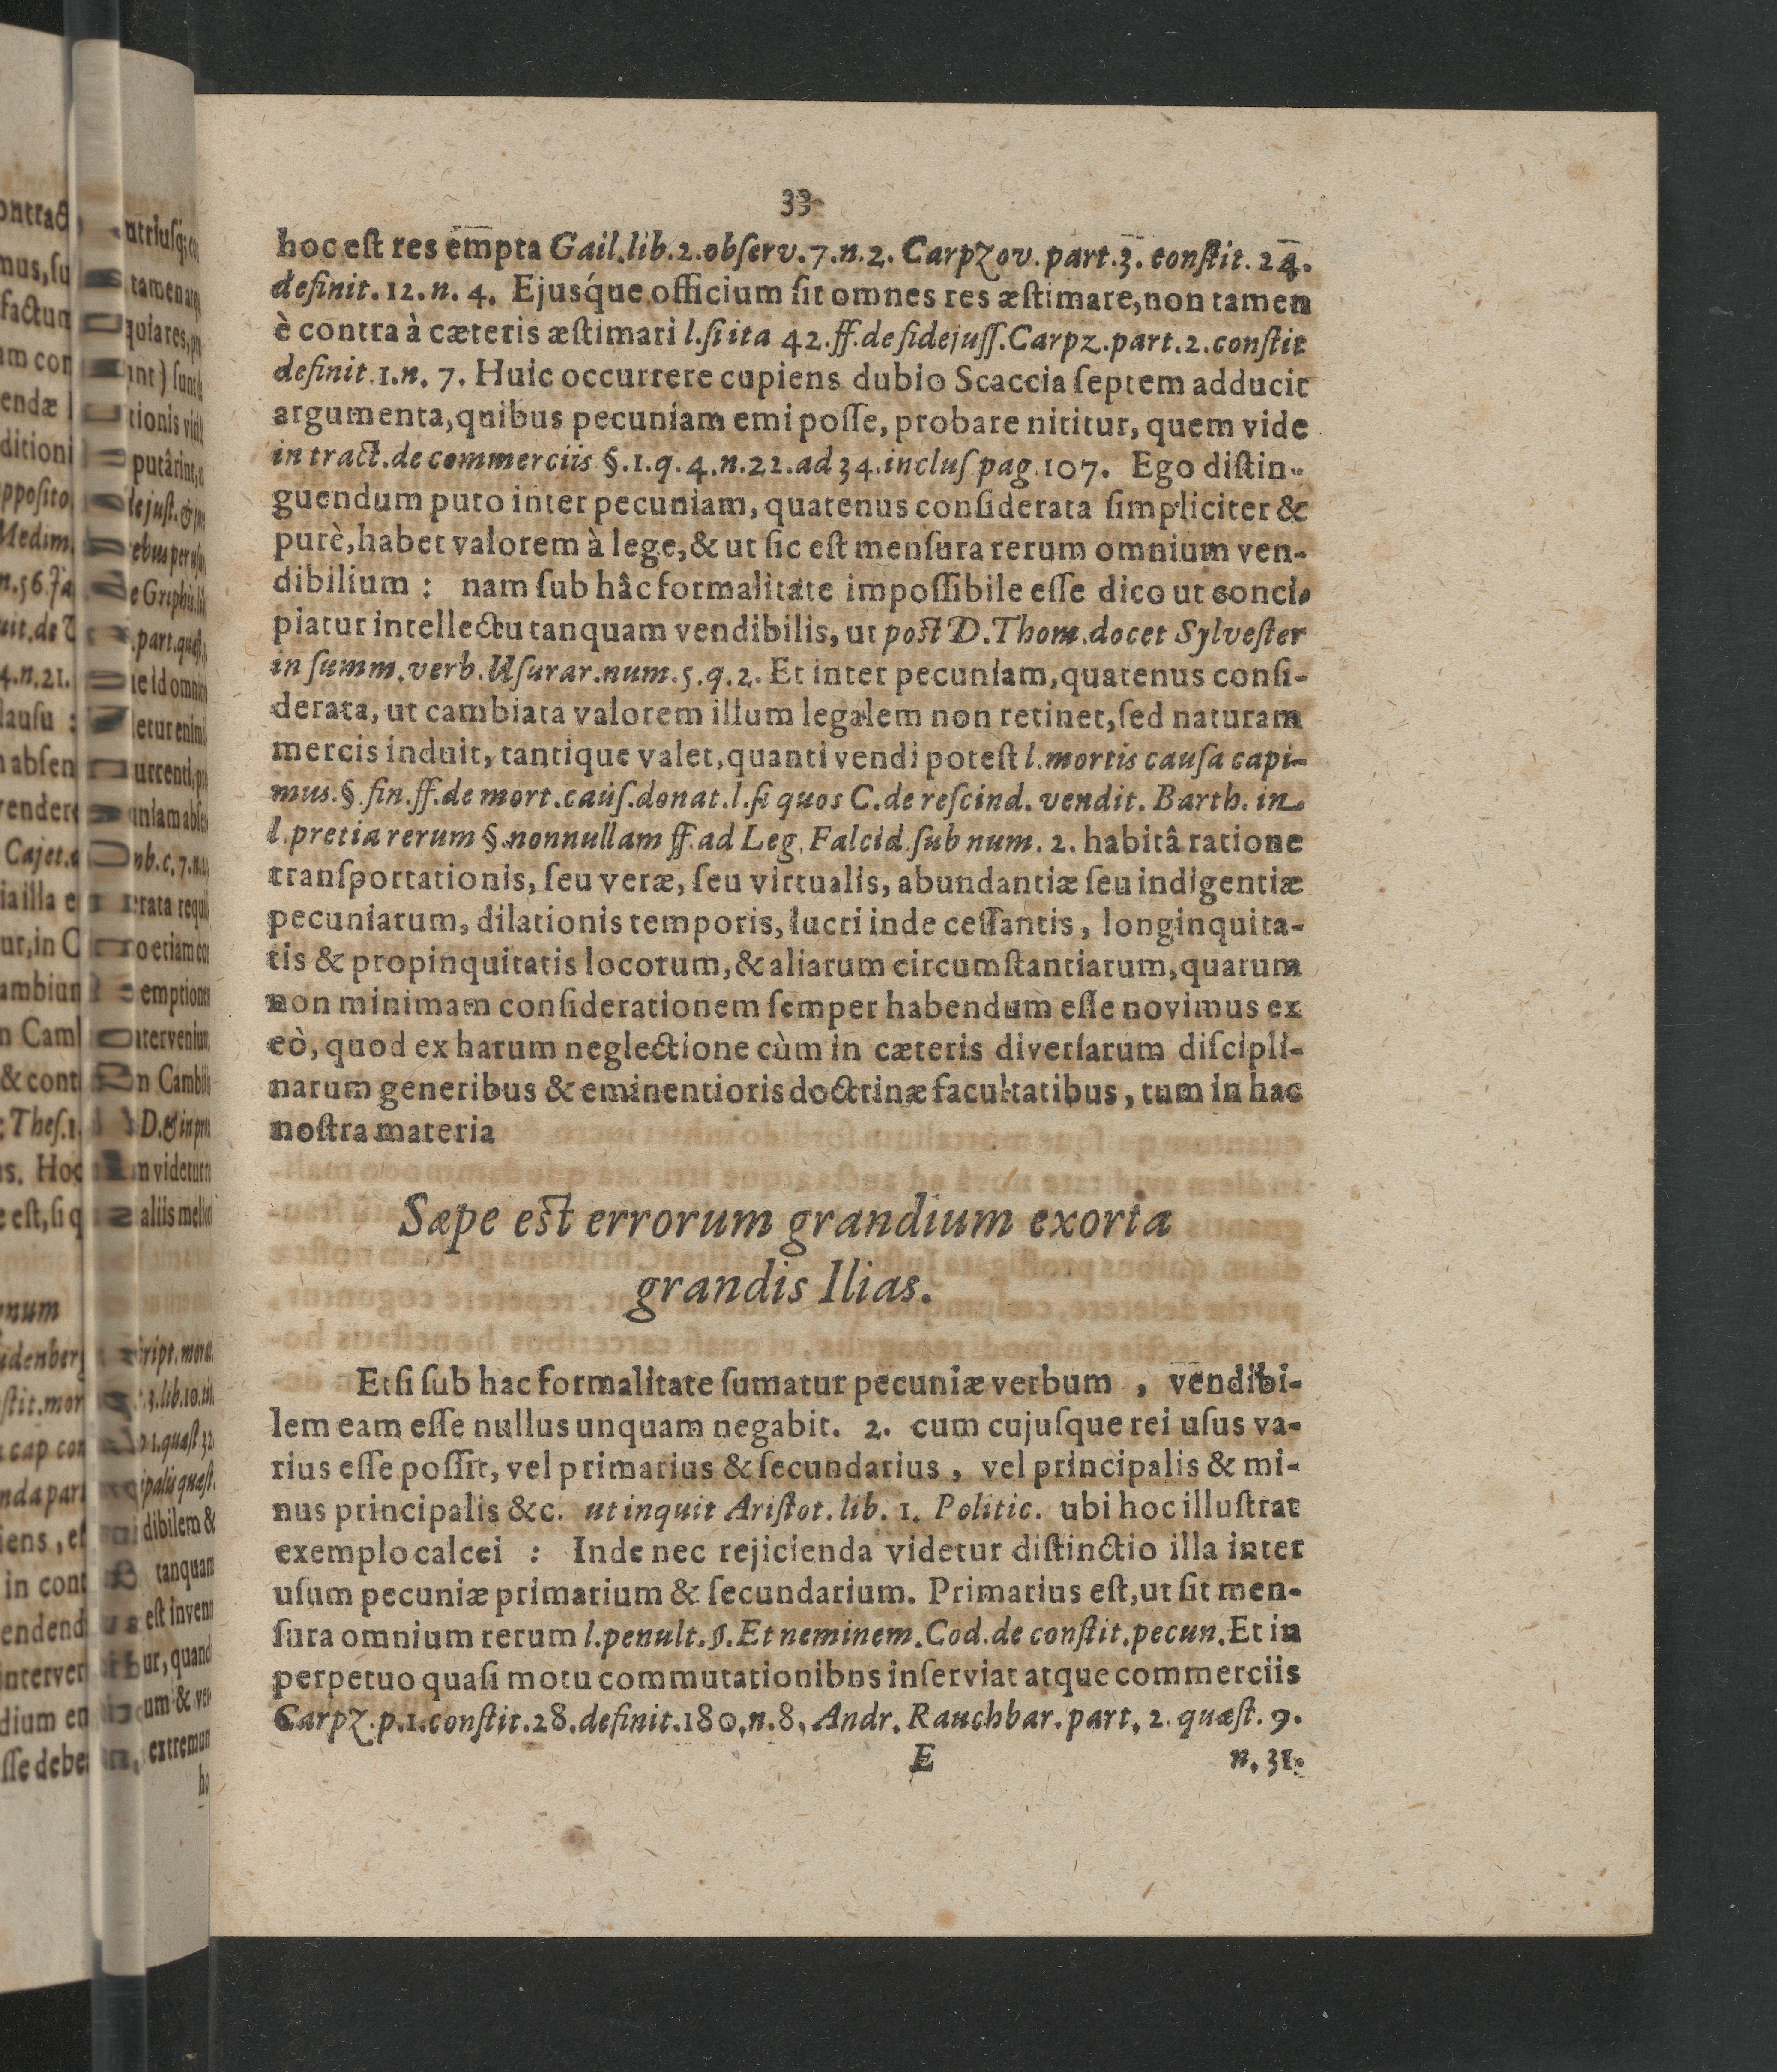 33
hoc est res empta Gail.lib.2.observ.7.n.2. Carpzov.part.3.constit.24.
definit.12.n.4. Ejusq́ue officium sit omnes res æstimare,non tamen
è contra à cæteris æstimari l.si ita 42.ff.de fidejuss.Carpz.part.2.constit
definit.1.n.7. Huic occurrere cupiens dubio Scaccia septem adducit
argumenta,quibus pecuniam emi posse, probare nititur, quem vide
in tract.de commerciis §.1.q.4.n.21.ad 34.inclus pag.107. Ego distin-
guendum puto inter pecuniam, quatenus considerata simpliciter &
purè,habet valorem à lege,& ut sic est mensura rerum omnium ven-
dibilium : nam sub hâc formalitate impossibile esse dico ut conci-
piatur intellectu tanquam vendibilis, ut post D.Thom.docet Sylvester
in summ.verb.Usurar.num.5.q.2. Et inter pecuniam,quatenus consi-
derata, ut cambiata valorem illum legalem non retinet,sed naturam
mercis induit, tantique valet,quanti vendi potest l.mortis causa capi-
mus.§.fin.ff.de mort.caus.donat.l.si quos C.de rescind.vendit. Barth.in
l.pretia rerum §.nonnullam ff.ad Leg.Falcid.sub num. 2. habitâ ratione
transportationis, seu veræ, seu virtualis, abundantiæ seu indigentiæ
pecuniarum, dilationis temporis, lucri inde cessantis, longinquita-
tis & propinquitatis locorum,& aliarum circumstantiarum,quarum
non minimam considerationem semper habendum esse novimus ex
eò, quod ex harum neglectione cùm in cæteris diversarum discipli-
narum generibus & eminentioris doctrinæ facultatibus, tum in hac
nostra materia
Sæpe est errorum grandium exorta
grandis Ilias.
Etsi sub hac formalitate sumatur pecuniæ verbum , vendibi-
lem eam esse nullus unquam negabit. 2. cum cujusque rei usus va-
rius esse possit, vel primarius & secundarius , vel principalis & mi-
nus principalis &c. ut inquit Aristot. lib. 1. Politic. ubi hoc illustrat
exemplo calcei : Inde nec rejicienda videtur distinctio illa inter
usum pecuniæ primarium & secundarium. Primarius est,ut sit men-
sura omnium rerum l.penult.§.Et neminem.Cod.de constit.pecun.Et in
perpetuo quasi motu commutationibns inserviat atque commerciis
Carpz.p.1.constit.28.definit.180.n.8. Andr. Rauchbar.part. 2. quæst. 9.
E n. 31.